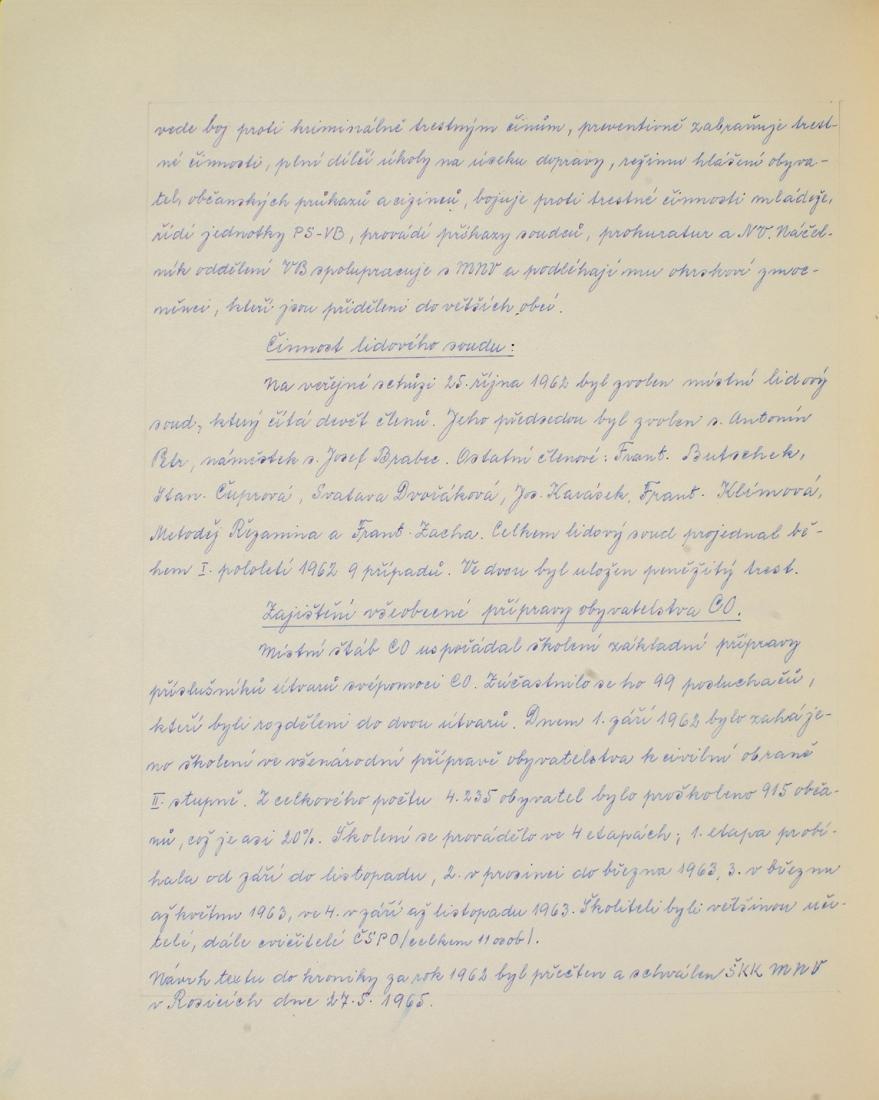 vede boj proti kriminálně trestným činům, preventivně zabraňuje trest-
né činnosti, plní dílčí úkoly na úseku dopravy, režimu hlášení obyva-
tel, občanských průkazů a cizinců, bojuje proti trestné činnosti mládeže,
řídí jednotky PS-VB, provádí příkazy soudců, prokuratur a NV. Náčel-
ník oddělení VB spolupracuje s MNV a podléhají mu okrskoví zmoc-
něnci, kteří jsou přiděleni do větších obcí.
Činnost lidového soudu:
Na veřejné schůzi 25. října 1962 byl zvolen místní lidový
soud, který čítá devět členů. Jeho předsedou byl zvolen s. Antonín
Petr, náměstek s. Josef Brabec. Ostatní členové: Frant. Butschek,
Stan. Čuprová, Svatava Dvořáková, Jos. Karásek, Frant. Klímová,
Metoděj Řezanina a Frant. Zacha. Celkem lidový soud projednal bě-
hem I. pololetí 1962 9 případů. Ve dvou byl uložen peněžitý trest.
Zajištění všeobecné přípravy obyvatelstva CO.
Místní štáb CO uspořádal školení základní přípravy
příslušníků útvarů svépomoci CO. Zúčastnilo se ho 99 posluchačů,
kteří byli rozděleni do dvou útvarů. Dnem 1. září 1962 bylo zaháje-
no školení ve všenárodní přípravě obyvatelstva k civilní obraně
II. stupně. Z celkového počtu 4.235 obyvatel bylo proškoleno 915 obča-
nů, což je asi 20%. Školení se provádělo ve 4 etapách; 1. etapa probí-
hala od září do listopadu, 2. v prosinci do března 1963, 3. v březnu
až květnu 1963, ve 4. v září až listopadu 1963. Školiteli byli většinou uči-
telé, dále cvičitelé ČSPO (celkem 11 osob).
Návrh textu do kroniky za rok 1962 byl přečten a schválen ŠKK MNV
v Rosicích dne 27. 5. 1965.